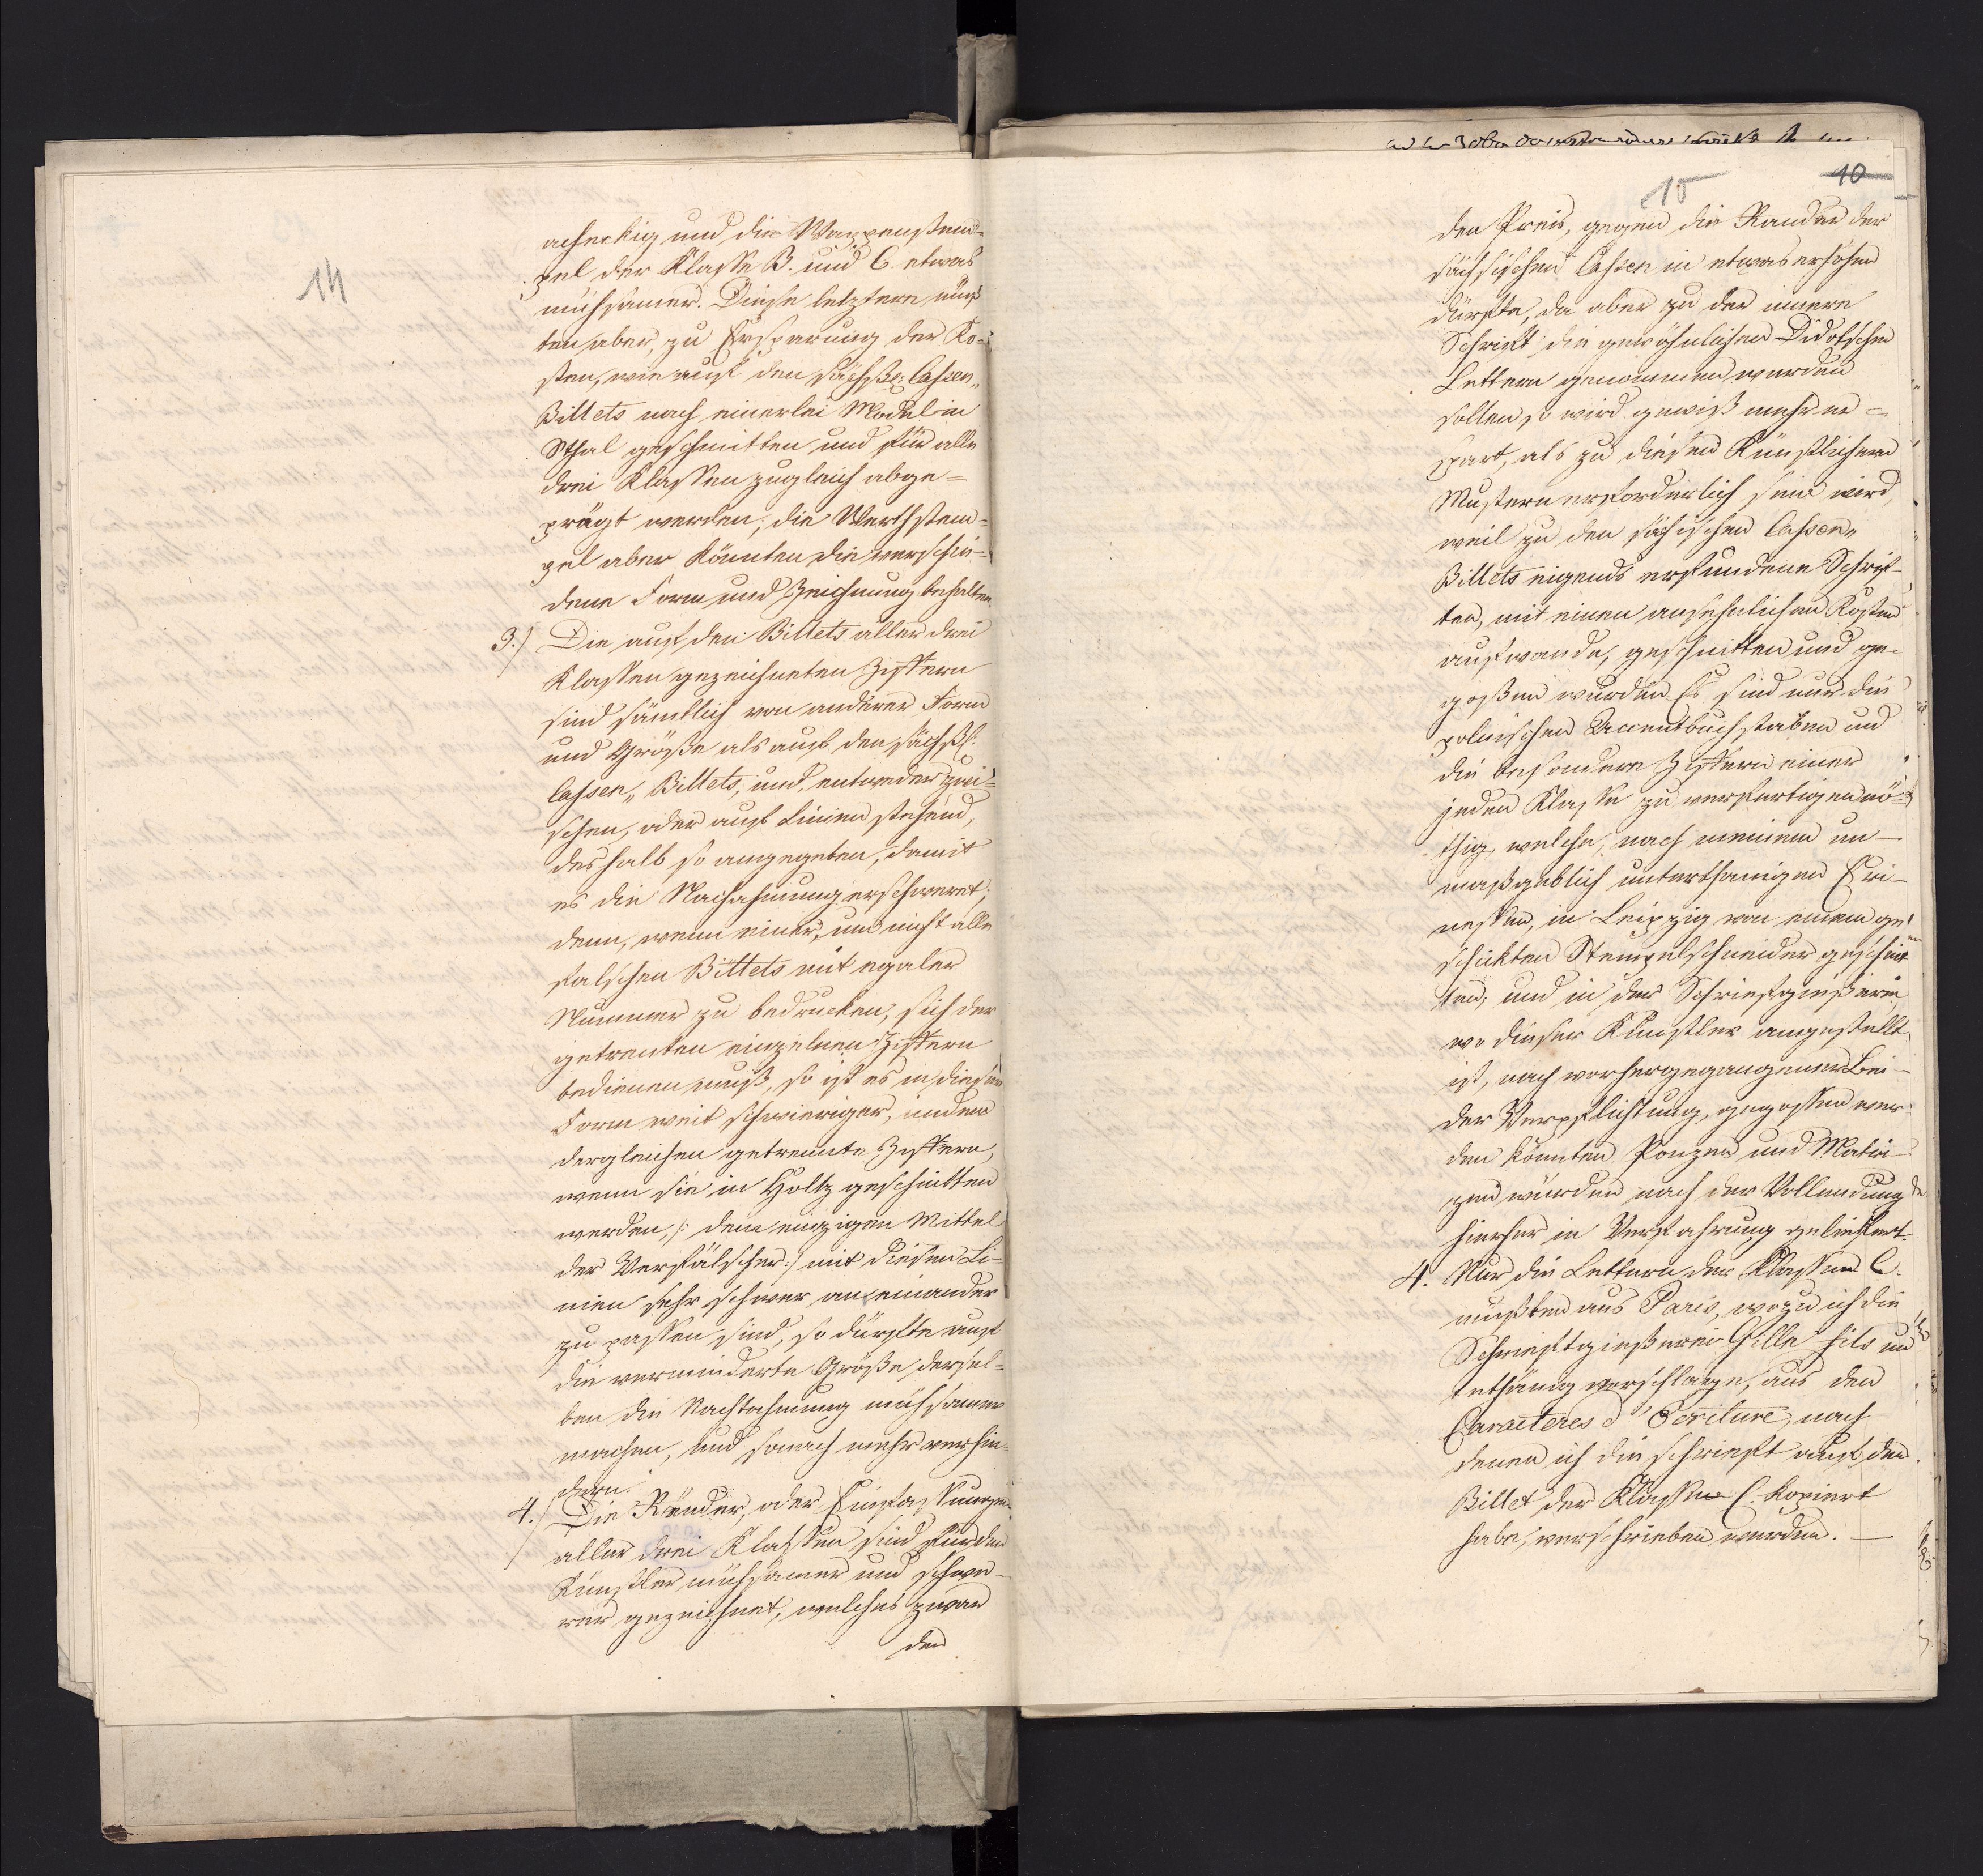 14
achteckig und die Wappenstem-
pel der Klasse B. und C. etwas
mühsamer. Diese letztern müß-
ten aber, zu Ersparung der Ko-
sten, wie auf den sächß: Cassen,,
Billets nach einerlei Model in
Sthal geschnitten und für alle
drei Klassen zugleich abge-
prägt werden; die Werthstem-
pel aber könnten die verschie-
dene Form und Zeichnung behalten.
3.) Die auf den Billets aller drei
Klassen gezeichneten Ziffern
sind sämtlich von anderer Form
und Größe als auf den sächßs:
Cassen,, Billets, und, entweder zwi-
schen, oder auf Linien stehend,
deshalb so angegeben, damit
es die Nachahmung erschweret;
denn, wenn einer, um nicht alle
falschen Billets mit egaler
Nummer zu bedrucken, sich der
getrenten einzelnen Ziffern
bedienen muß, so ist es in dieser
Form weit schwieriger, indem
dergleichen getrennte Ziffern,
wenn sie in Holtz geschnitten
werden, /: dem einzigen Mittel
der Verfälscher :/ mit diesen Li-
nien sehr schwer an einander
zu passen sind, so dürfte auch
die verminderte Größe dersel-
ben die Nachahmung mühsamer
machen, und sonach mehr verhin-
dern.
4.) Die Ränder, oder Einfassungen
aller drei Klassen sind für den
Künstler mühsamer und schwe-
rer gezeichnet, welches zwar
den
10
15
den Preis, gegen die Rander der
sächsischen Cassen in etwas erhöhen
dürfte, da aber zu der innern
Schrift die gewöhnlichen Didotschen
Lettern genommen werden
sollen so wird gewiß mehr er-
spart, als zu diesen Künstlichern
Mustern erforderlich sein wird,
weil zu den sächsischen Cassen,,
Billets eigends erfundene Schrif-
ten, mit einen ansehnlichen Kosten
aufwande, geschnitten und ge-
goßen wurden. Es sind nur die
polnischen Accentbuchstaben und
die besondere Ziffern einer
jeden Klasse zu verfertigen nö-
thig, welche, nach meinem un-
maßgeblich unterthänigen Erm-
eßen, in Leipzig von einem ge-
schickten Stempelschneider geschnit-
ten, und in der Schriftgießerei,
wo dieser Künstler angestellt
ist, nach vorhergegangener Ei-
der Verpflichtung, gegossen wer-
den könnten. Ponzen und Matri-
zen würden nach der Vollendung
hierher in Verfahrung geliefert.
4. Nur die Lettern der Klassen C.
mußten aus Paris, wozu ich die
Schriftgießerei Gille fils un-
terthänig vorschlage, aus den
Caracteres d'Ecriture, nach
denen ich die schrieft auf den
Billet der Klasse C. kopiert
habe, verschrieben werden. —